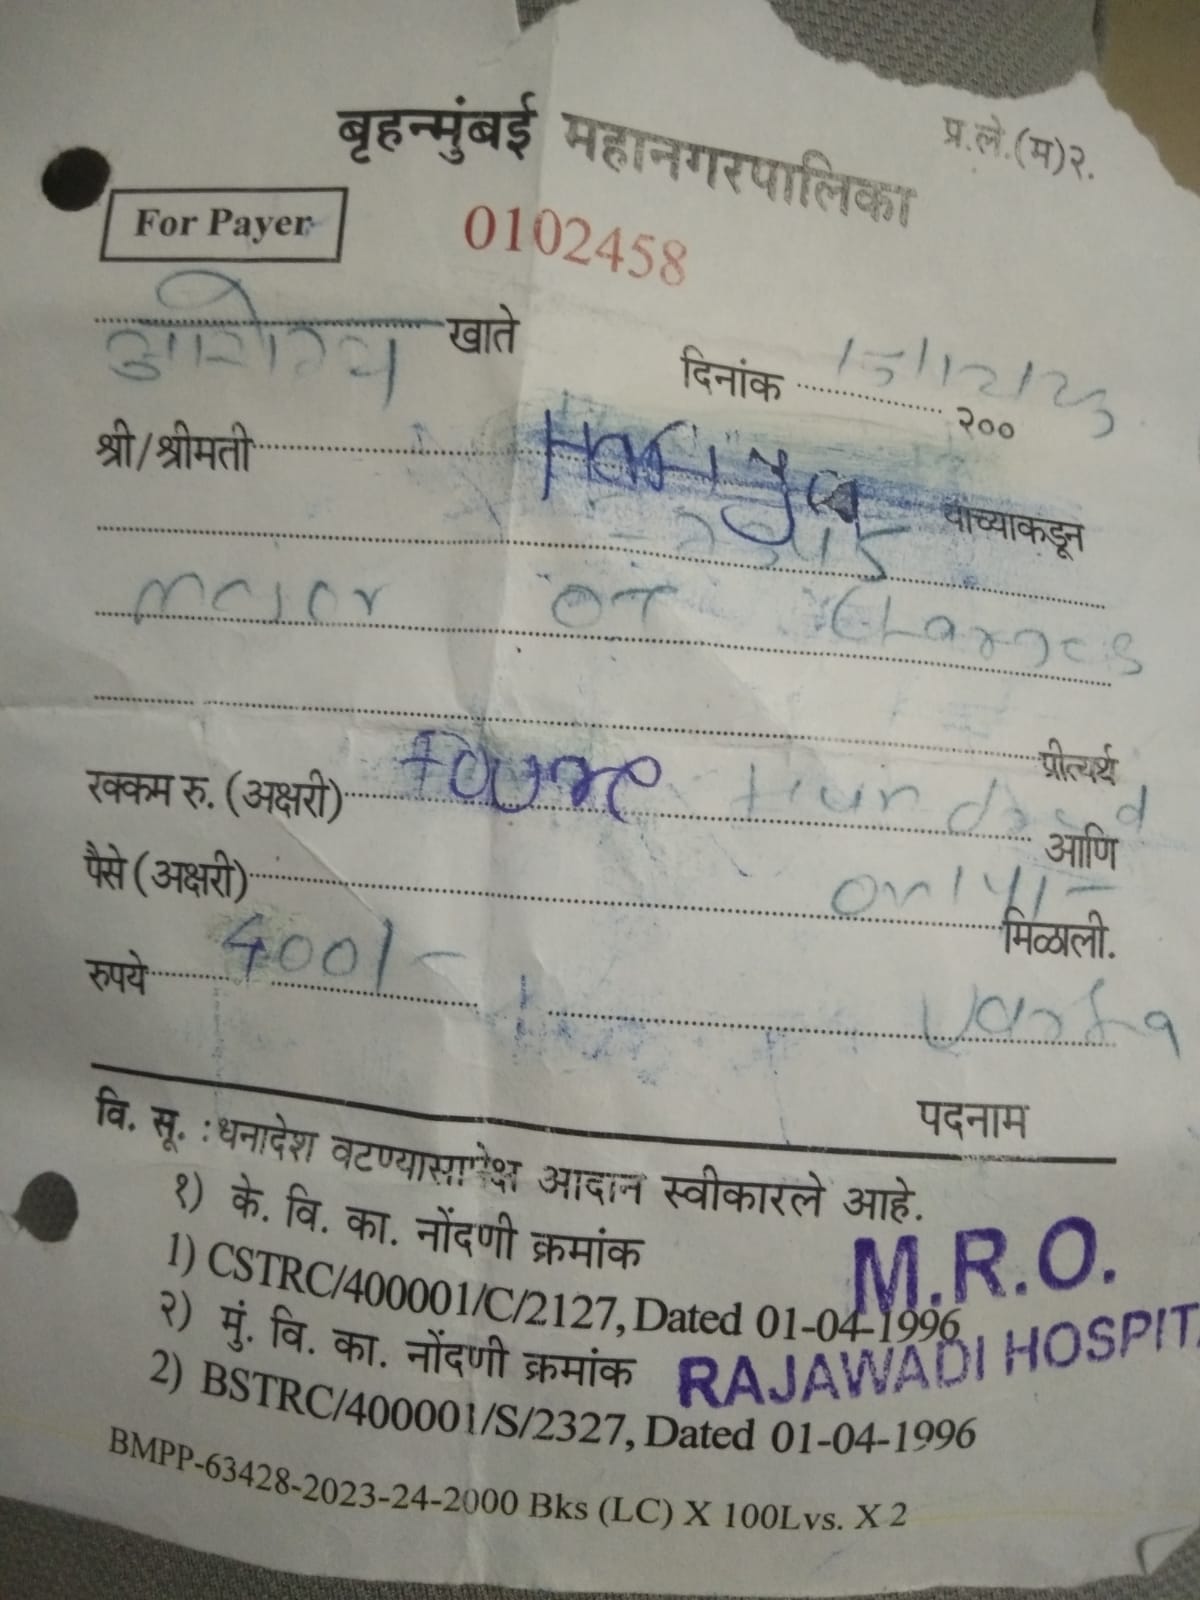 प्र.ले.(म)२.
बृहन्मुंबई महानगरपालिका
For Payer
0102458
आरोग्य खाते
दिनांक 15/12/23 २००
श्री/श्रीमती यांच्याकडून
major OT Charges
प्रीत्यर्थ
रक्कम रु. (अक्षरी) foure Hundred आणि
पैसे (अक्षरी) only/- मिळाली.
रुपये 400/-
पदनाम
वि. सू. : धनादेश वटण्यासापेक्ष आदान स्वीकारले आहे.
१) के. वि. का. नोंदणी क्रमांक
1) CSTRC/400001/C/2127, Dated 01-04-1996
२) मुं. वि. का. नोंदणी क्रमांक
2) BSTRC/400001/S/2327, Dated 01-04-1996
M.R.O.
RAJAWADI HOSPITA
BMPP-63428-2023-24-2000 Bks (LC) X 100Lvs. X 2